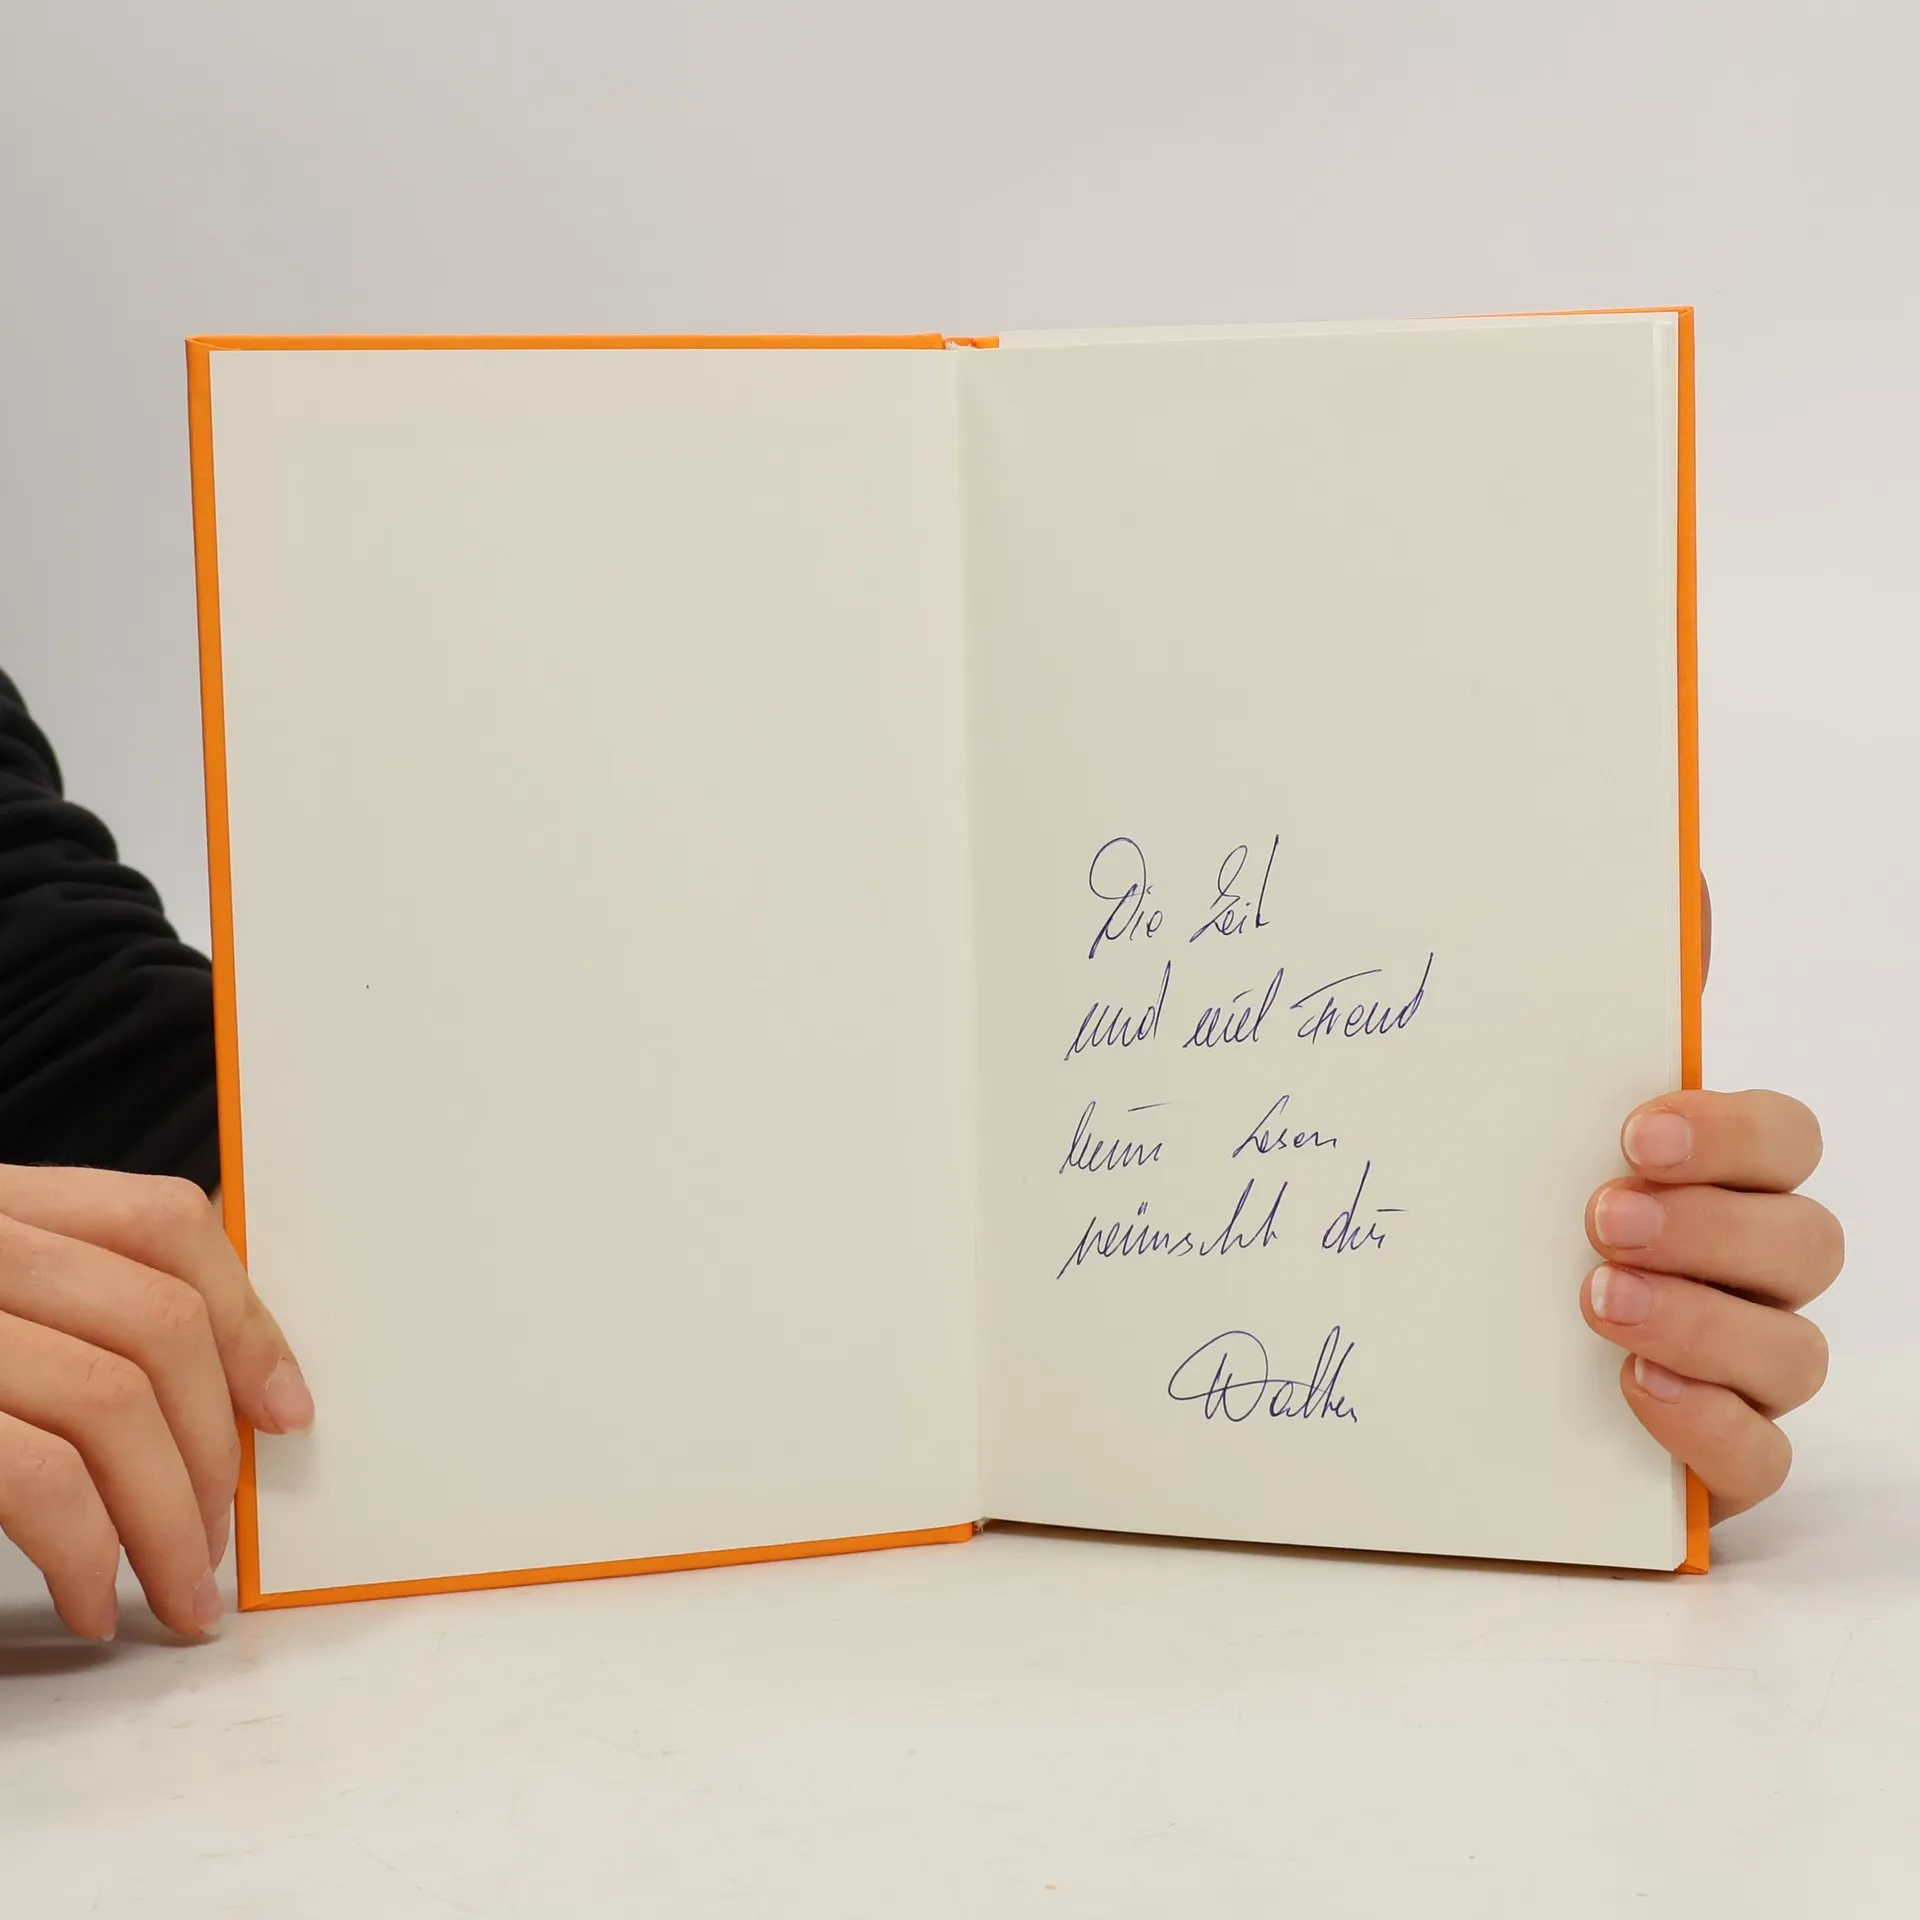 Die Zeit
und viel Freud
beim Lesen
wünscht dir
Walter